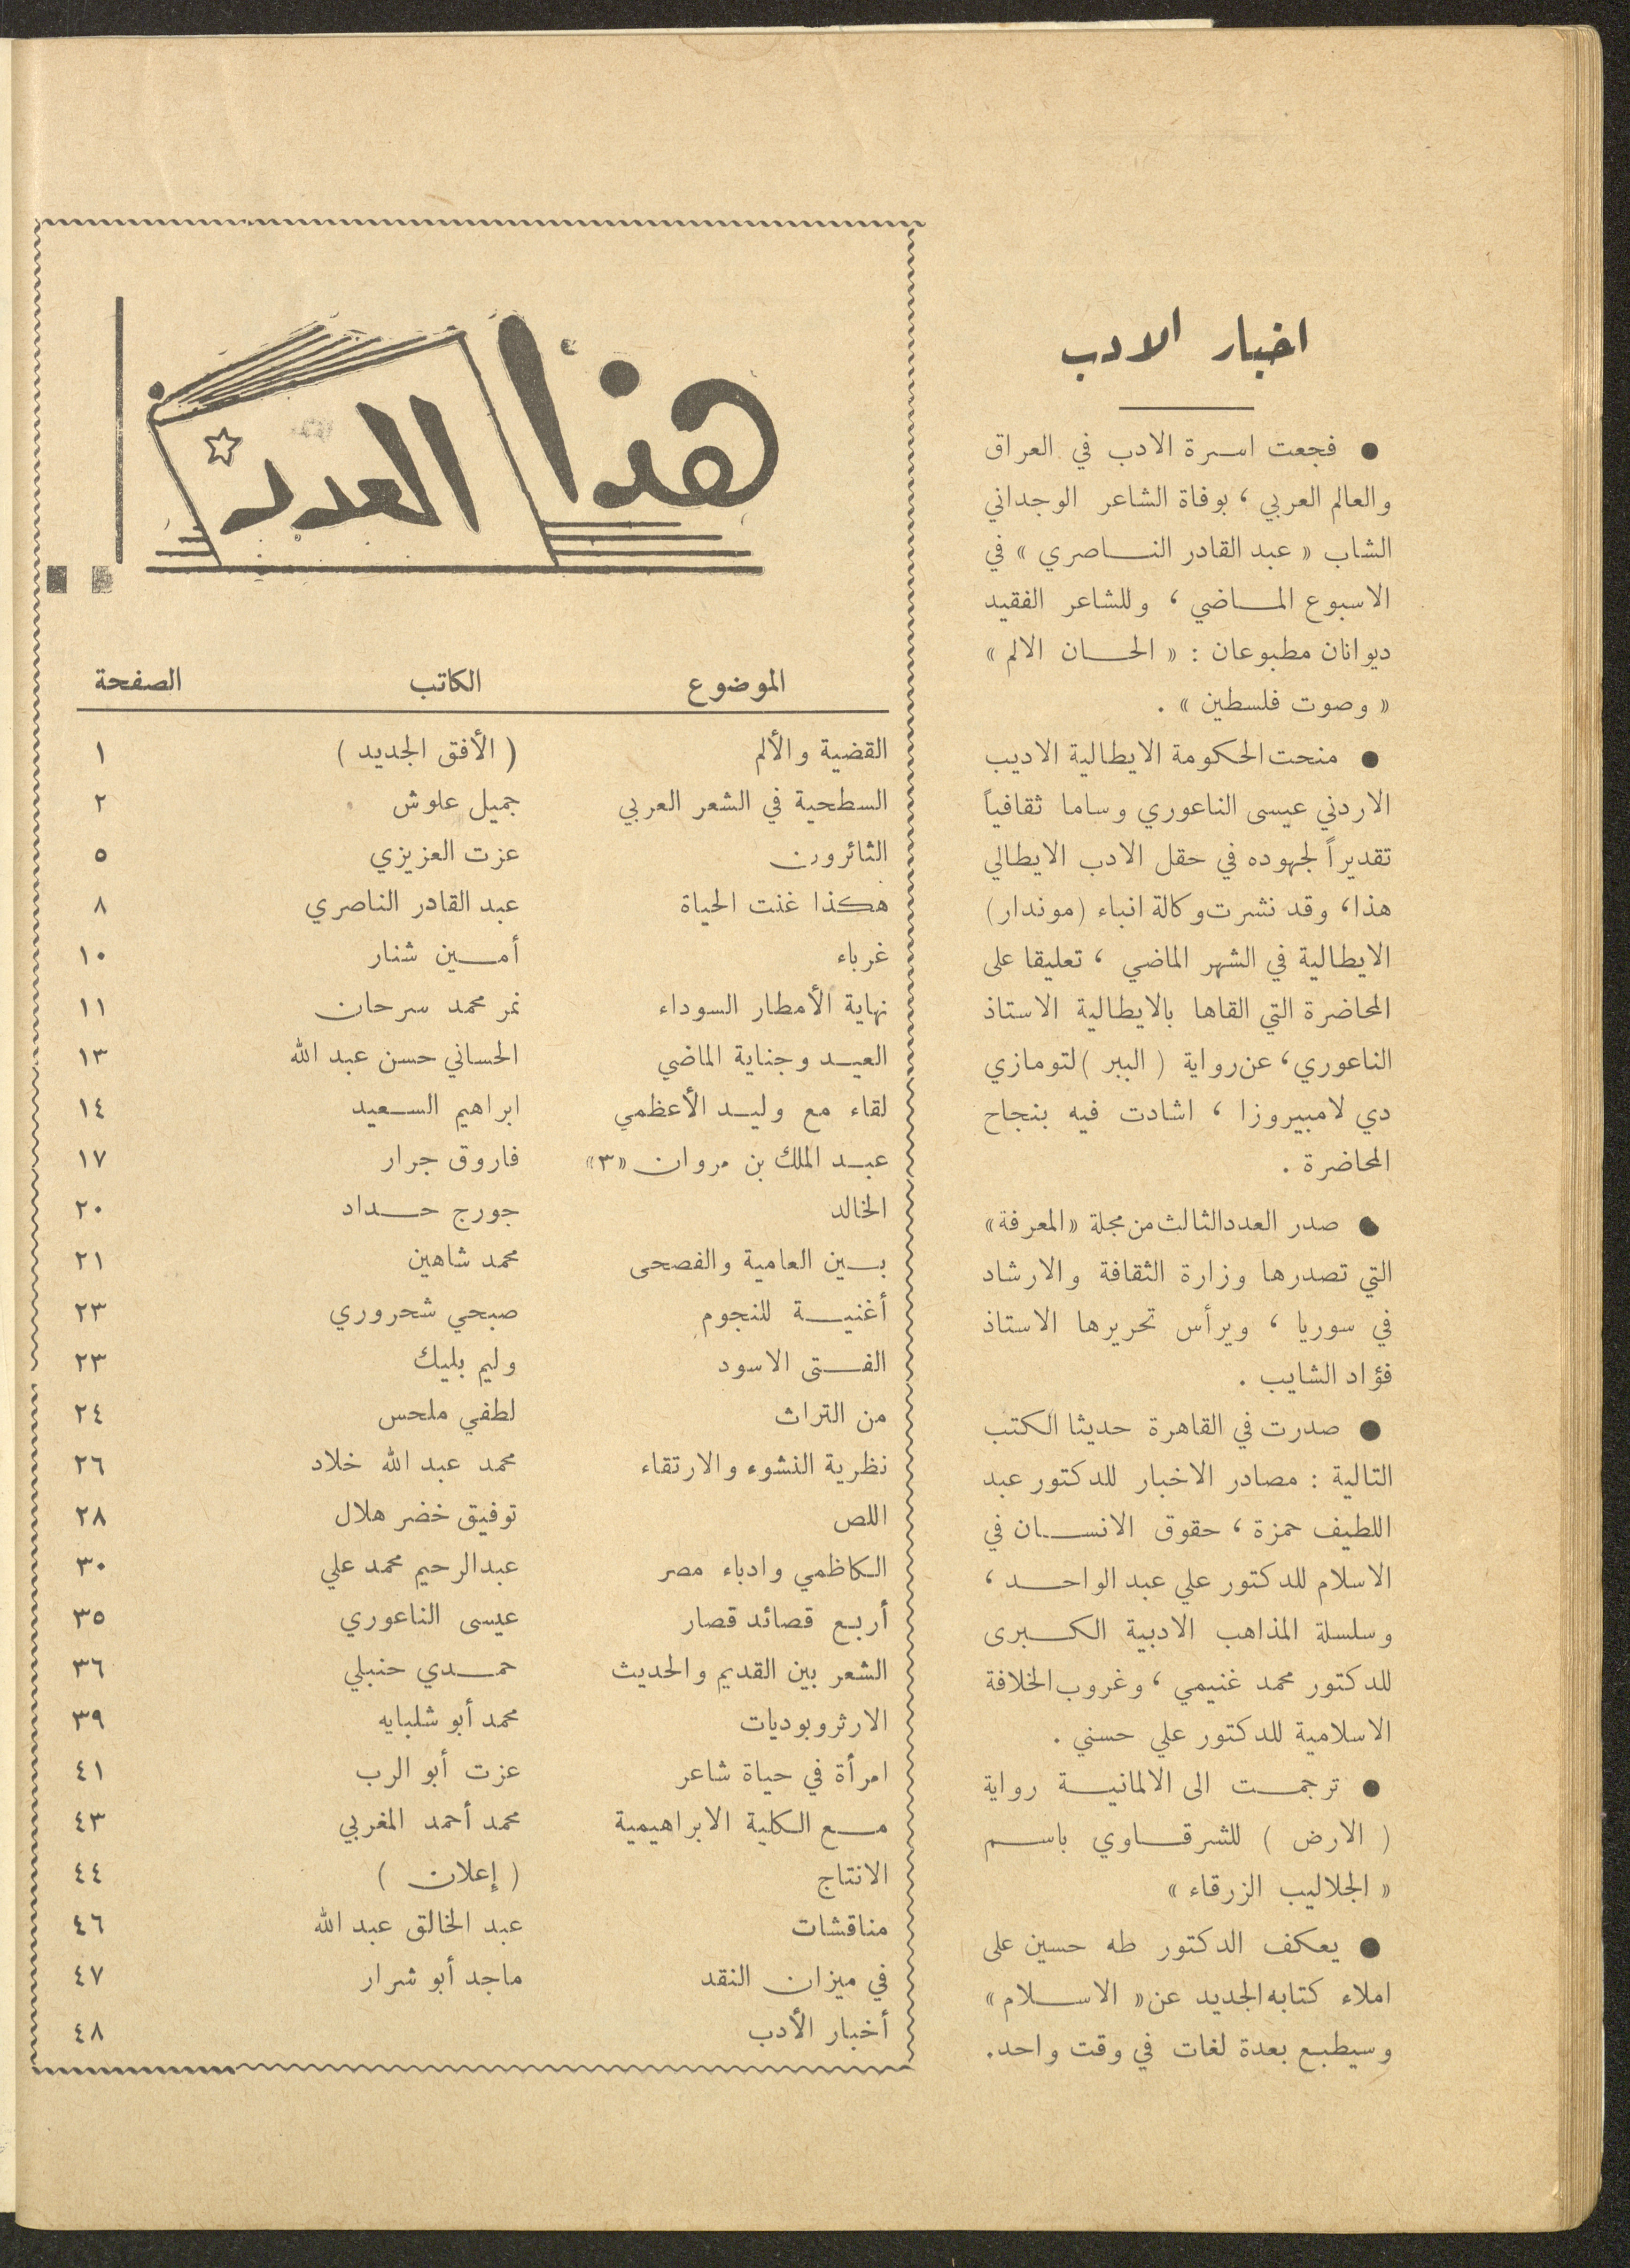 اخبار الادب
● فجعت اسرة الادب في العراق
والعالم العربي ، بوفاة الشاعر الوجداني
الشاب « عبد القادر الناصري » في
الاسبوع الماضي ، وللشاعر الفقيد
ديوانان مطبوعان : « الحان الالم »
« وصوت فلسطين » .
● منحت الحكومة الايطالية الاديب
الاردني عيسى الناعوري وساما ثقافياً
تقديراً لجهوده في حقل الادب الايطالي
هذا، وقد نشرت وكالة انباء (موندار)
الايطالية في الشهر الماضي ، تعليقا على
المحاضرة التي القاها بالايطالية الاستاذ
الناعوري، عن رواية ( الببر ) لتومازي
دي لامبيروزا ، اشادت فيه بنجاح
المحاضرة .
● صدر العدد الثالث من مجلة «المعرفة»
التي تصدرها وزارة الثقافة والارشاد
في سوريا ، ويرأس تحريرها الاستاذ
فؤاد الشايب .
● صدرت في القاهرة حديثا الكتب
التالية : مصادر الاخبار للدكتور عبد
اللطيف حمزة ، حقوق الانسان في
الاسلام للدكتور علي عبد الواحد ،
وسلسلة المذاهب الادبية الكبرى
للدكتور محمد غنيمي ، وغروب الخلافة
الاسلامية للدكتور علي حسني .
● ترجمت الى الالمانية رواية
( الارض ) للشرقاوي باسم
« الجلاليب الزرقاء »
● يعكف الدكتور طه حسين على
املاء كتابه الجديد عن « الاسلام »
وسيطبع بعدة لغات في وقت واحد.
هذا العدد
الموضوع الكاتب الصفحة
القضية والألم ( الأفق الجديد ) ١
السطحية في الشعر العربي جميل علوش ٢
الثائرون عزت العزيزي ٥
هكذا غنت الحياة عبد القادر الناصري ٨
غرباء أمين شنار ١٠
نهاية الأمطار السوداء نمر محمد سرحان ١١
العيد وجناية الماضي الحساني حسن عبد الله ١٣
لقاء مع وليد الأعظمي ابراهيم السعيد ١٤
عبد الملك بن مروان «٣» فاروق جرار ١٧
الخالد جورج حداد ٢٠
بين العامية والفصحى محمد شاهين ٢١
أغنية للنجوم صبحي شحروري ٢٣
الفتى الاسود وليم بليك ٢٣
من التراث لطفي ملحس ٢٤
نظرية النشوء والارتقاء محمد عبد الله خلاد ٢٦
اللص توفيق خضر هلال ٢٨
الكاظمي وادباء مصر عبدالرحيم محمد علي ٣٠
أربع قصائد قصار عيسى الناعوري ٣٥
الشعر بين القديم والحديث حمدي حنبلي ٣٦
الارثروبوديات محمد أبو شلبايه ٣٩
امرأة في حياة شاعر عزت أبو الرب ٤١
مع الكلية الابراهيمية محمد أحمد المغربي ٤٣
الانتاج ( إعلان ) ٤٤
مناقشات عبد الخالق عبد الله ٤٦
في ميزان النقد ماجد أبو شرار ٤٧
أخبار الأدب ٤٨